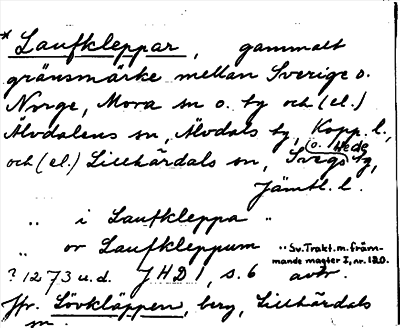 * Laufkleppar, gammalt
gränsmärke mellan Sverige o.
Norge, Mora sn o. tg och (el.)
Älvdalens sn, Älvdals tg, Kopp. l.,
och (el.) Lillhärdals sn, Svegs o. Hede tg,
Jämtl. l.
" i Laufkleppa "
" or Laufkleppum "Sv. Trakt. m. främ-
mande magter I, nr. 120.
? 1273 u.d. JHD 1, s. 6 avtr.
Jfr. Lövkläppen, berg, Lillhärdals
sn.